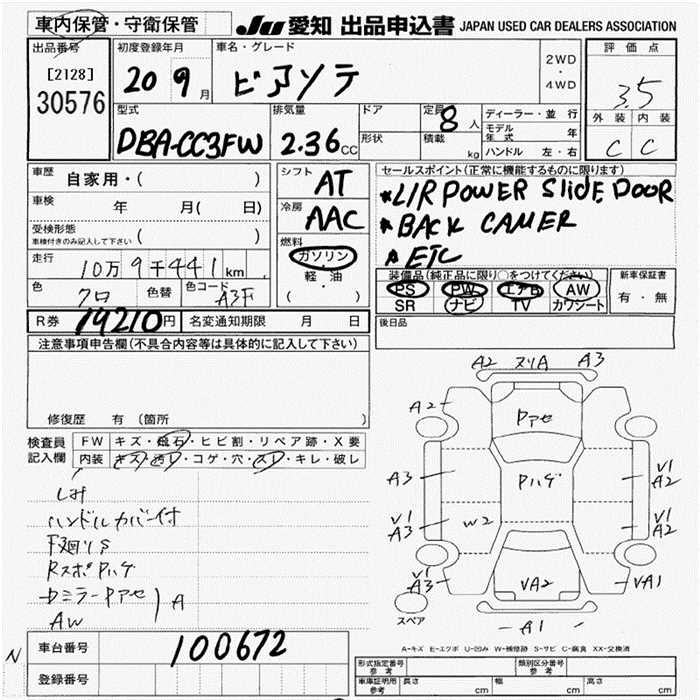 車内保管・守衛保管
JU 愛知 出品申込書 JAPAN USED CAR DEALERS ASSOCIATION
出品番号
[2128]
30576
初度登録年月
20 9月
車名・グレード
ビアンテ
2WD
・
4WD
評価点
3.5
外装 内装
C C
型式
DBA-CC3FW
排気量
2.36cc
ドア
形状
定員 8人
積載 kg
ディーラー・並行
モデル年式 年
ハンドル 左・右
車歴 自家用・( )
車検 年 月( 日)
受検形態
車検付きのみ記入して下さい ( )
走行 10万9千441km
色 クロ 色替 色コード A3F
シフト AT
冷房 AAC
燃料
ガソリン
軽・油
( )
セールスポイント(正常に機能するものに限ります)
*L/R POWER SliDE DOOR
*BACK CAMER
*ETC
装備品(純正品に限り○をつけてください)
PS PW エアB AW
SR ナビ TV カワシート
新車保証書
有・無
R券 14210円 名変通知期限 月 日
後日品
注意事項申告欄(不具合内容等は具体的に記入して下さい)
修復歴 有(箇所 )
検査員記入欄
FW キズ・飛石・ヒビ割・リペア跡・X要
内装 キズ・汚レ・コゲ・穴・スレ・キレ・破レ
ハンドルカバー付
下廻りS
RスポPハゲ
ドミラーPアセ
AW
A
A2 ヌリA A3
A2 Pアセ
A3 Pハゲ V1 A2
V1 A3 W2 V1 A2
V1 A3 VA2 VA1
スペア
A1
A-キズ E-エクボ U-凹み W-補修跡 S-サビ C-腐食 XX-交換済
N
車台番号 100672
登録番号
形式指定番号 参考
類別区分番号 参考
車庫証明用 参考 長さ cm 幅 cm 高さ cm